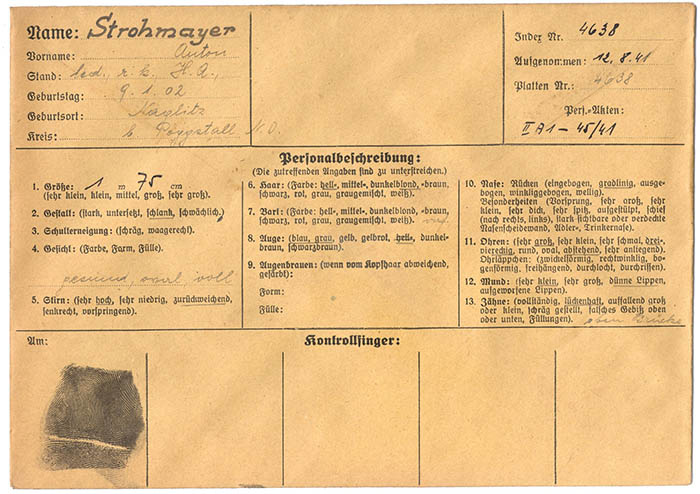 Name: Strohmayer
Vorname: Anton
Stand: led., r. k., H. A.,
Geburtstag: 9. 1. 02
Geburtsort: Naglitz
Kreis: b. Pöggstall N. D.
Index Nr. 4638
Aufgenommen: 12. 8. 41
Platten Nr.: 4638
Pers.-Akten:
II A1 - 45/41
Personalbeschreibung:
(Die zutreffenden Angaben sind zu unterstreichen.)
1. Größe: 1 m 75 cm
(sehr klein, klein, mittel, groß, sehr groß).
2. Gestalt: (stark, untersetzt, schlank, schwächlich).
3. Schulterneigung: (schräg, waagerecht).
4. Gesicht: (Farbe, Farm, Fülle).
gesund, oval voll
5. Stirn: (sehr hoch, sehr niedrig, zurückweichend,
senkrecht, vorspringend).
6. Haar: (Farbe: hell-, mittel-, dunkelblond, -braun,
schwarz, rot, grau, graugemischt, weiß).
7. Bart: (Farbe: hell-, mittel-, dunkelblond, -braun,
schwarz, rot, grau, graugemischt, weiß).
8. Auge: (blau, grau, gelb, gelbrot, hell-, dunkel-
braun, schwarzbraun).
9. Augenbrauen: (wenn vom Kopfhaar abweichend,
gefärbt):
Form:
Fülle:
10. Nase: Rücken (eingebogen, gradlinig, ausge-
bogen, winkliggebogen, wellig).
Besonderheiten (Vorsprung, sehr groß, sehr
klein, sehr dick, sehr spitz, aufgestülpt, schief
(nach rechts, links), stark sichtbare oder verdeckte
Nasenscheidewand, Adler-, Trinkernase).
11. Ohren: (sehr groß, sehr klein, sehr schmal, drei-
viereckig, rund, oval, abstehend, sehr anliegend).
Ohrläppchen: (zwickelförmig, rechtwinklig, bo-
genförmig, freihängend, durchlocht, durchrissen).
12. Mund: (sehr klein, sehr groß, dünne Lippen,
aufgeworfene Lippen).
13. Zähne: (vollständig, lückenhaft, auffallend groß
oder klein, schräg gestellt, falsches Gebiß oben
oder unten, Füllungen). oben Brücke
Am:
Kontrollfinger: